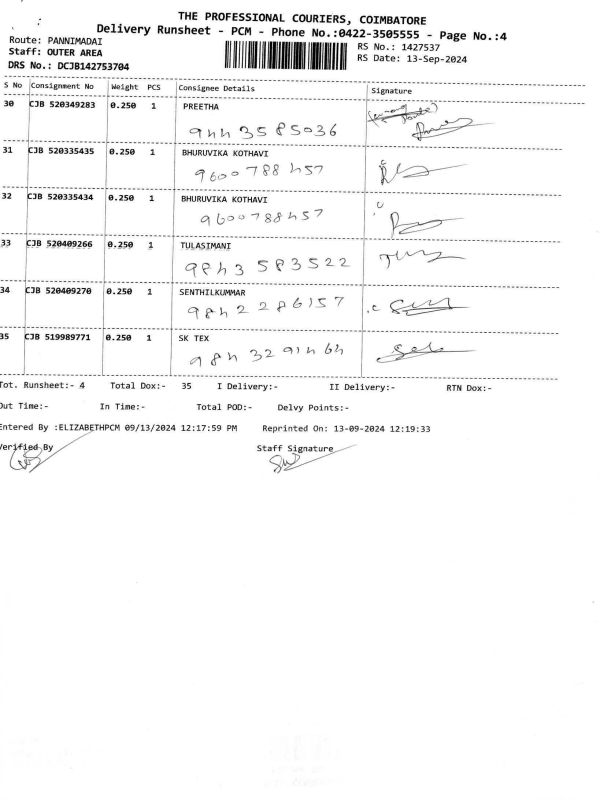 THE PROFESSIONAL COURIERS, COIMBATORE
Delivery Runsheet - PCM - Phone No.:0422-3505555 - Page No.:4
Route: PANNIMADAI
Staff: OUTER AREA
DRS No.: DCJB142753704
RS No.: 1427537
RS Date: 13-Sep-2024
S No Consignment No Weight PCS Consignee Details Signature
30 CJB 520349283 0.250 1 PREETHA
9443585036
31 CJB 520335435 0.250 1 BHURUVIKA KOTHAVI
9600788457
32 CJB 520335434 0.250 1 BHURUVIKA KOTHAVI
9600788457
33 CJB 520409266 0.250 1 TULASIMANI
9843583522
34 CJB 520409270 0.250 1 SENTHILKUMMAR
9842286157
35 CJB 519989771 0.250 1 SK TEX
9843291464
Tot. Runsheet:- 4 Total Dox:- 35 I Delivery:- II Delivery:- RTN Dox:-
Out Time:- In Time:- Total POD:- Delvy Points:-
Entered By :ELIZABETHPCM 09/13/2024 12:17:59 PM Reprinted On: 13-09-2024 12:19:33
Verified By Staff Signature